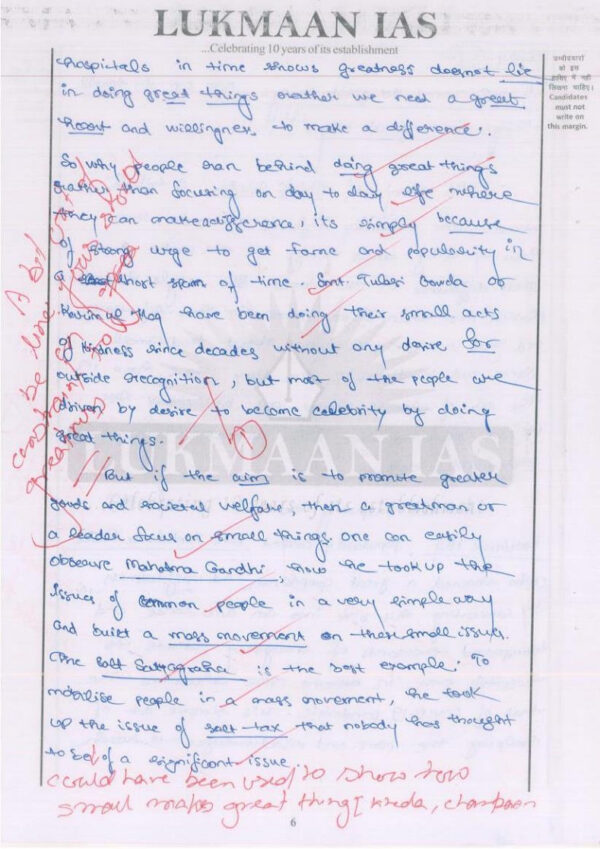 LUKMAAN IAS
...Celebrating 10 years of its establishment
उम्मीदवारों
को इस
हाशिए में नहीं
लिखना चाहिए।
Candidates
must not
write on
this margin.
hospitals in time shows greatness doesnot lie
in doing great things rather we need a great
heart and willingness to make a difference.
So why people run behind doing great things
rather than focusing on day to day life where
they can make a difference, its simply because
of strong urge to get fame and popularity in
a short span of time. Smt. Tulasi Gowda or
Karimul Haq have been doing their small acts
of kindness since decades without any desire for
outside recognition, but most of the people are
driven by desire to become celebrity by doing
great things.
But if the aim is to promote greater
goods and societal welfare then a greatman or
a leader focus on small things. One can easily
observe Mahatma Gandhi, how he took up the
issues of common people in a very simple way
and built a mass movement on these small issues.
The Salt Satyagraha is the best example. To
mobilise people in a mass movement, he took
up the issue of salt-tax that nobody has thought
to be of a significant issue.
could have been used to show how
small makes great thing [Kheda, Champaran
LUKMAAN IAS
6